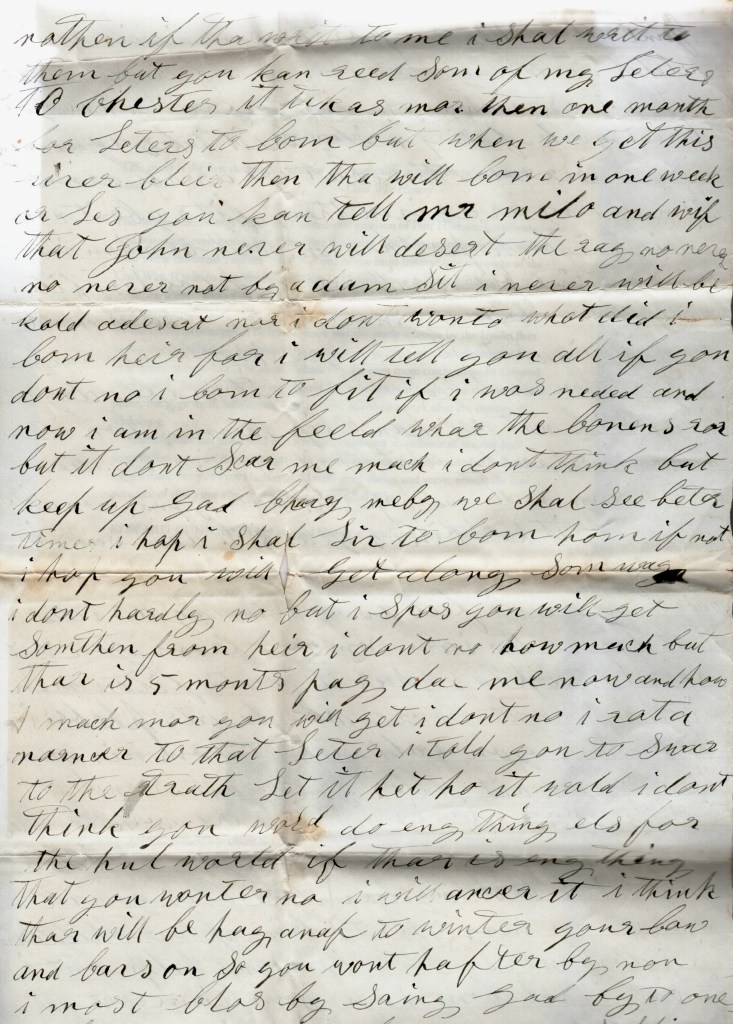 nothen if tha writ to me i shal writ to
them but you kan reed som of my Leters
to Chester it tekas mor then one month
for Leters to bom but when we get this
river bleir then tha will bom in one week
or Les you kan tell mr milo and wif
that John never will desert the rag no never
no never not by adam sit i never will be
kold adesert nor i dont wonto what did i
bom heir for i will tell you all if you
dont no i bom to fit if i was neded and
now i am in the feeld whar the bonens ror
but it dont scar me mach i dont think but
keep up gad meby we shal see beter
times i hop i shal Liv to bom hom if not
i hop you will get along som way
i dont hardly no but i spos you will get
somthen from heir i dont no how mach but
thar is 5 monts pay du me now and how
mach mor you will get i dont no i rot a
to that Leter i told you to swar
to the trath Let it het ho it wold i dont
think you wold do eny thing els for
the hul world if thar is eny thing
that you wonter no i will ancer it i think
thar will be hay anaf to winter your bow
and bars on so you wont hafter by non
i most blos by saing gad by to one